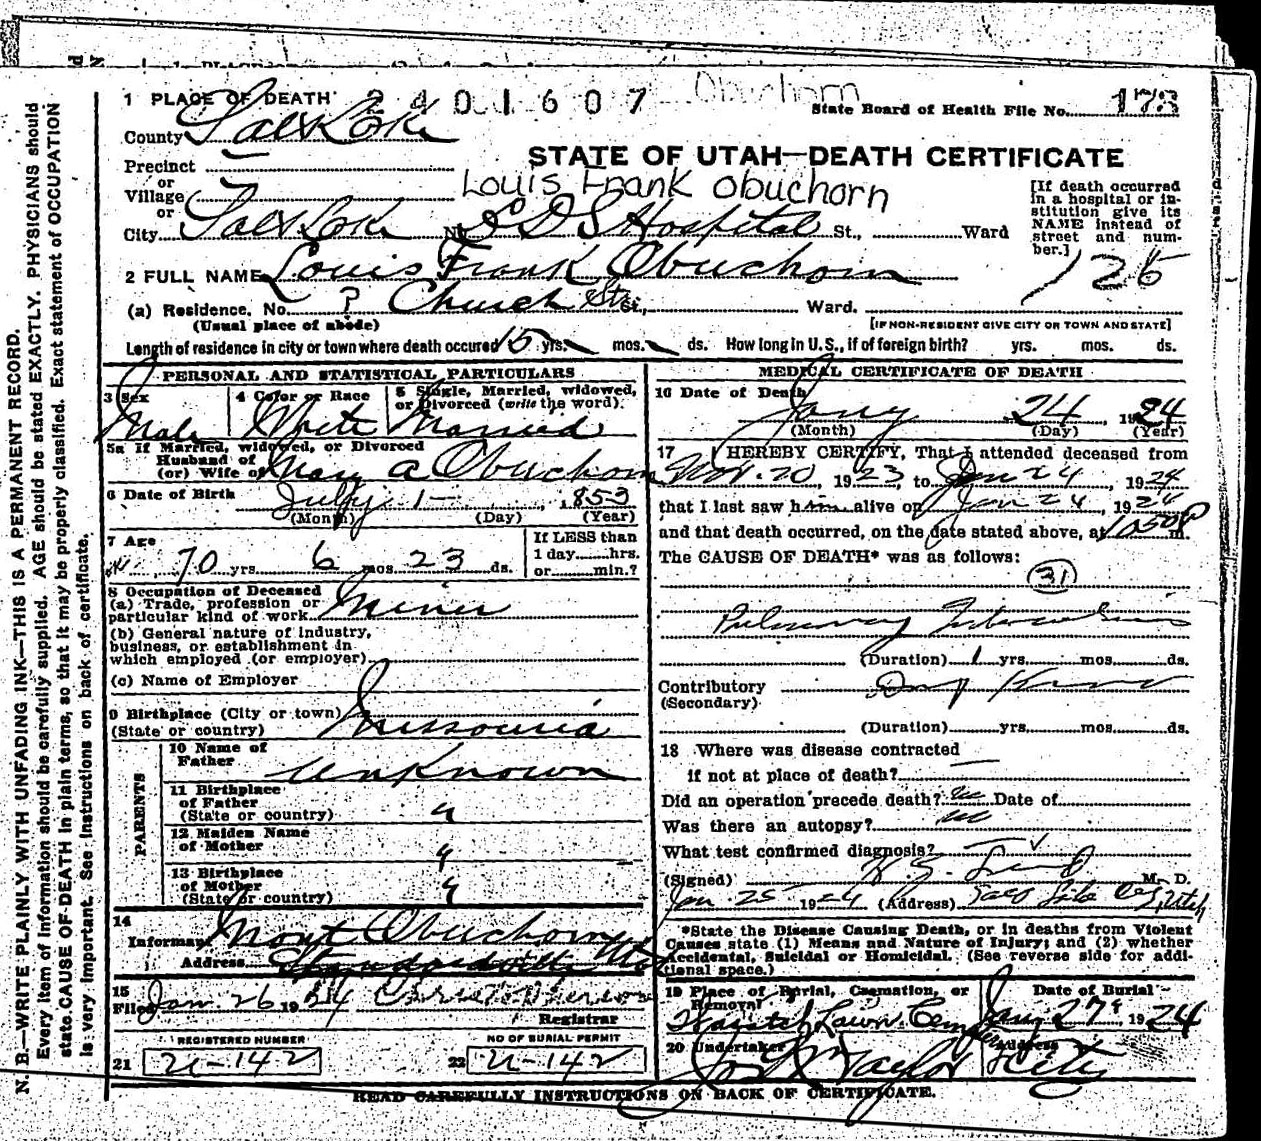 1 PLACE OF DEATH 2401607 Obuchorn State Board of Health File No. 173
County Salt Lake
STATE OF UTAH—DEATH CERTIFICATE
Precinct
or
Louis Frank Obuchorn
Village
or
[If death occurred in a hospital or institution give its NAME instead of street and number.]
City Salt Lake No. L D S Hospital St., Ward
2 FULL NAME Louis Frank Obuchorn
126
(a) Residence. No. ? Church St. St., Ward.
(Usual place of abode) [IF NON-RESIDENT GIVE CITY OR TOWN AND STATE]
Length of residence in city or town where death occured 15 yrs. mos. ds. How long in U.S., if of foreign birth? yrs. mos. ds.
PERSONAL AND STATISTICAL PARTICULARS
3 Sex 4 Color or Race 5 Single, Married, widowed, or Divorced (write the word).
Male White Married
5a If Married, widowed, or Divorced
Husband of
(or) Wife of Mary A Obuchorn
6 Date of Birth July 1 1853
(Month) (Day) (Year)
7 Age 70 yrs 6 mos 23 ds.
If LESS than
1 day......hrs.
or.......min.?
8 Occupation of Deceased
(a) Trade, profession or
particular kind of work Miner
(b) General nature of industry,
business, or establishment in
which employed (or employer)
(c) Name of Employer
9 Birthplace (City or town)
(State or country) Missouria
PARENTS
10 Name of
Father Unknown
11 Birthplace
of Father
(State or country) "
12 Maiden Name
of Mother "
13 Birthplace
of Mother
(State or country) "
14
Informant Mont Obuchorn
Address Standardville Utah
15
Filed Jan. 26 1924
Registrar
REGISTERED NUMBER NO OF BURIAL PERMIT
21 U-142 22 U-142
MEDICAL CERTIFICATE OF DEATH
16 Date of Death
Jany 24, 1924
(Month) (Day) (Year)
17 I HEREBY CERTIFY, That I attended deceased from
Nov. 20, 1923 to Jan 24, 1924
that I last saw him alive on Jan 24, 1924
and that death occurred, on the date stated above, at 10508P m.
The CAUSE OF DEATH* was as follows:
(31)
Pulmonary Tuberculosis
(Duration) 1 yrs. mos. ds.
Contributory
(Secondary)
(Duration) yrs. mos. ds.
18 Where was disease contracted
if not at place of death?
Did an operation precede death? no Date of
Was there an autopsy? no
What test confirmed diagnosis?
(Signed) M. D.
Jan. 25 1924 (Address) Salt Lake City, Utah
*State the Disease Causing Death, or in deaths from Violent
Causes state (1) Means and Nature of Injury; and (2) whether
Accidental, Suicidal or Homicidal. (See reverse side for addi-
tional space.)
19 Place of Burial, Cremation, or Removal Date of Burial
Wasatch Lawn Cem Jany 27" 1924
20 Undertaker Address
Taylor City
READ CAREFULLY INSTRUCTIONS ON BACK OF CERTIFICATE.
N. B.—WRITE PLAINLY WITH UNFADING INK—THIS IS A PERMANENT RECORD.
Every item of information should be carefully supplied. AGE should be stated EXACTLY. PHYSICIANS should
state CAUSE OF DEATH in plain terms, so that it may be properly classified. Exact statement of OCCUPATION
is very important. See instructions on back of certificate.